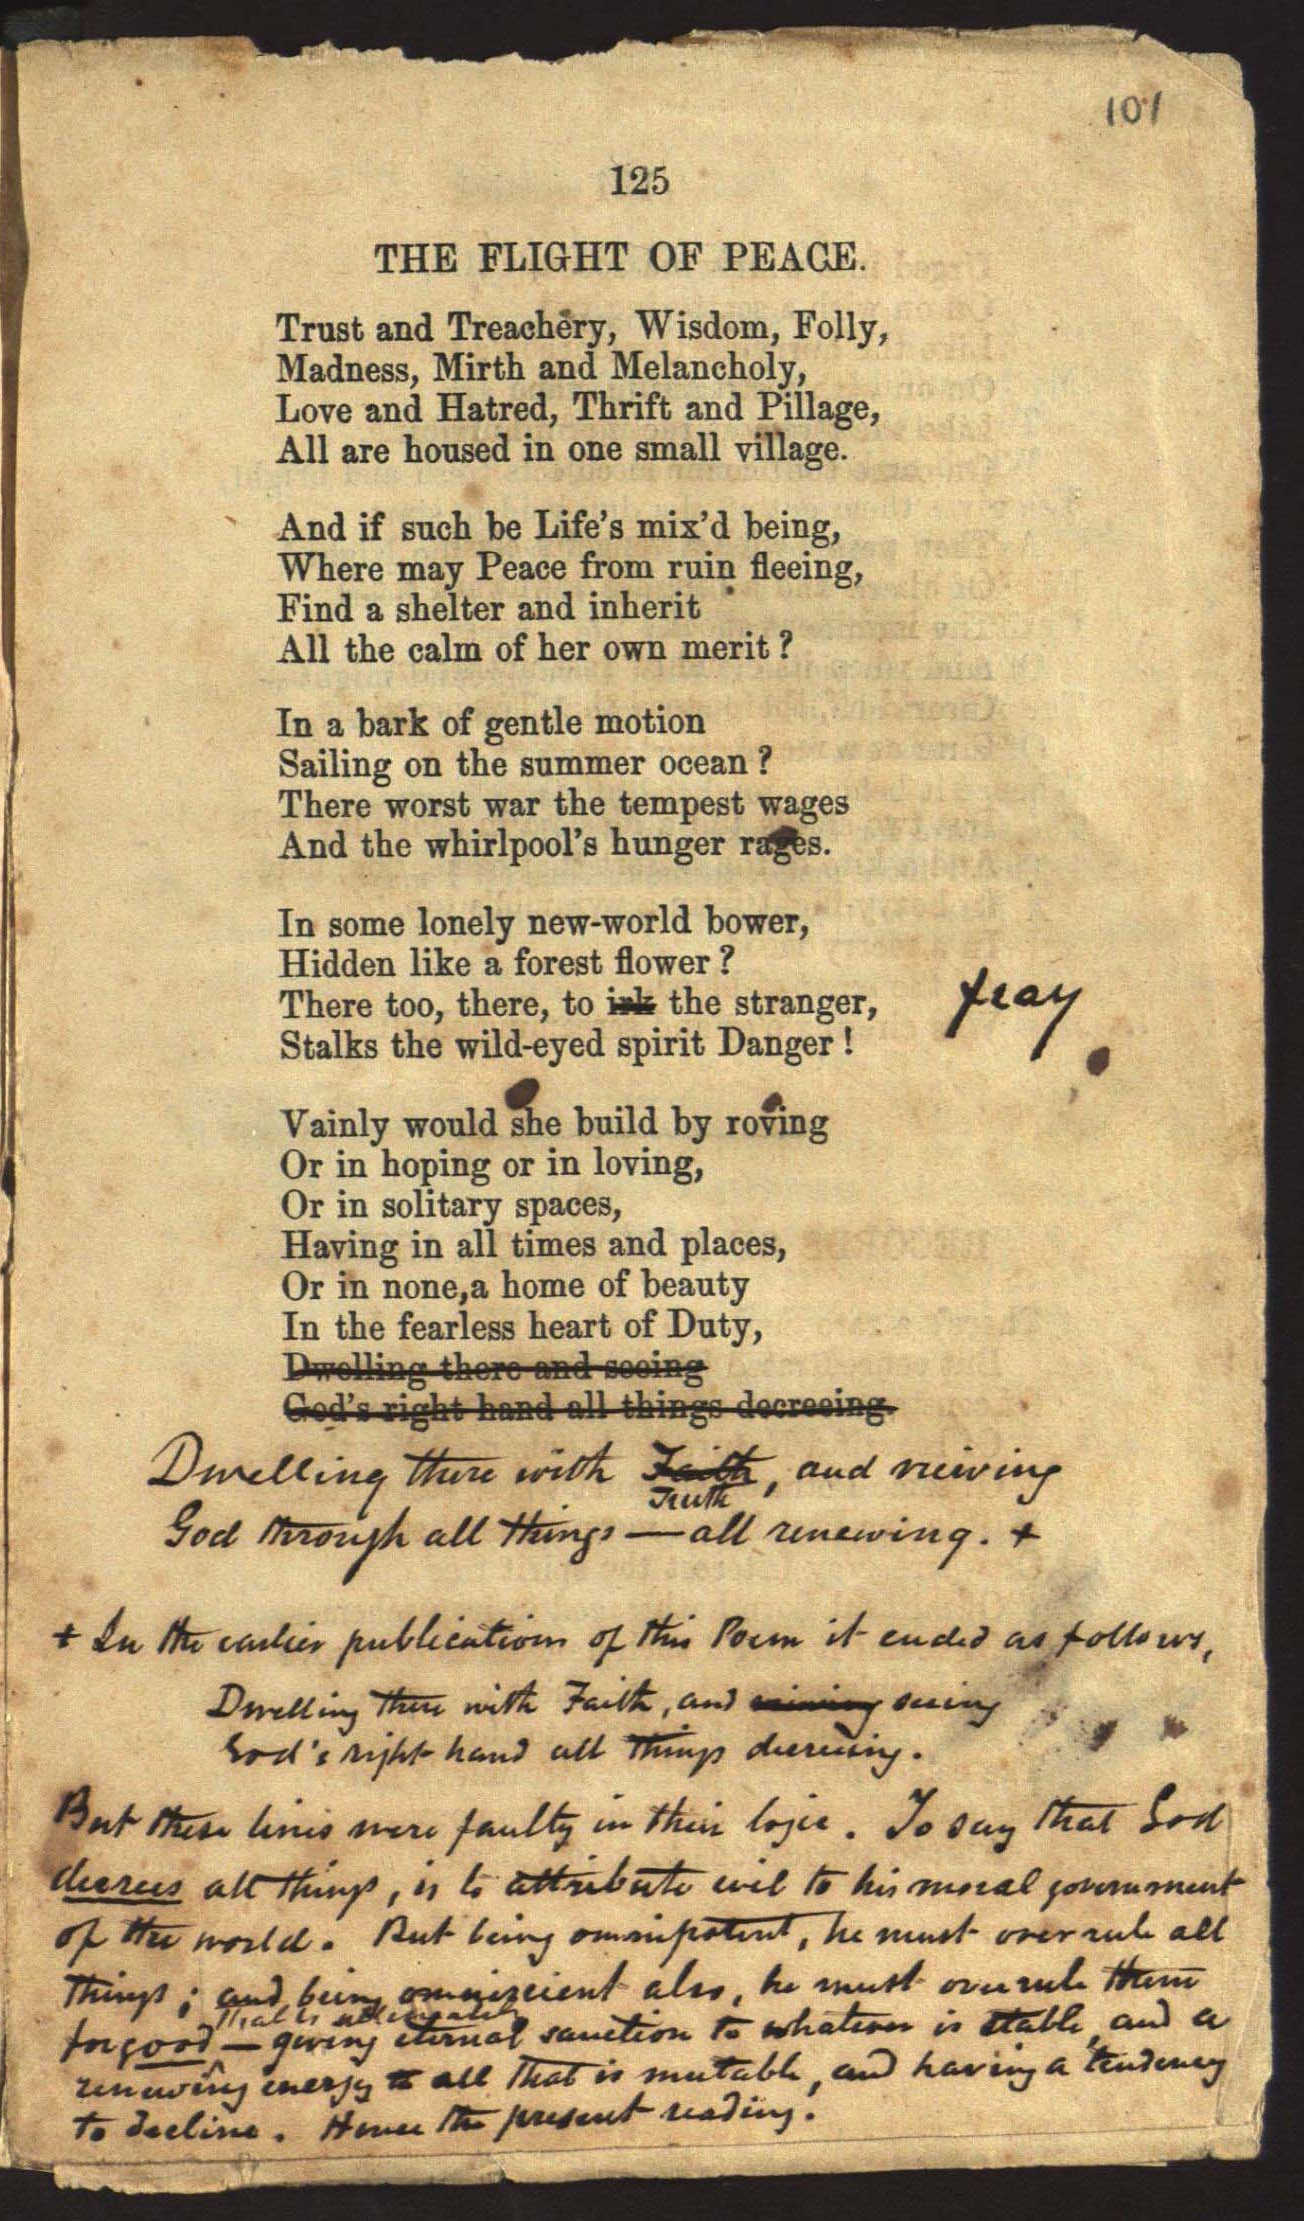 101
125
THE FLIGHT OF PEACE.
Trust and Treachery, Wisdom, Folly,
Madness, Mirth and Melancholy,
Love and Hatred, Thrift and Pillage,
All are housed in one small village.
And if such be Life's mix'd being,
Where may Peace from ruin fleeing,
Find a shelter and inherit
All the calm of her own merit?
In a bark of gentle motion
Sailing on the summer ocean?
There worst war the tempest wages
And the whirlpool's hunger rages.
In some lonely new-world bower,
Hidden like a forest flower?
There too, there, to irk the stranger,
fray
Stalks the wild-eyed spirit Danger!
Vainly would she build by roving
Or in hoping or in loving,
Or in solitary spaces,
Having in all times and places,
Or in none, a home of beauty
In the fearless heart of Duty,
Dwelling there and seeing
God's right hand all things decreeing.
Dwelling there with Faith, and viewing
Truth
God through all things — all renewing. +
+ In the earlier publications of this Poem it ended as follows,
Dwelling there with Faith, and viewing seeing
God's right hand all things decreeing.
But these lines were faulty in their logic. To say that God
decrees all things, is to attribute evil to his moral government
of the world. But being omnipotent, he must overrule all
things; and being omniscient also, he must overrule them
that is ultimately
for good — giving eternal sanction to whatever is stable, and a
renewing energy to all that is mutable, and having a tendency
to decline. Hence the present reading.